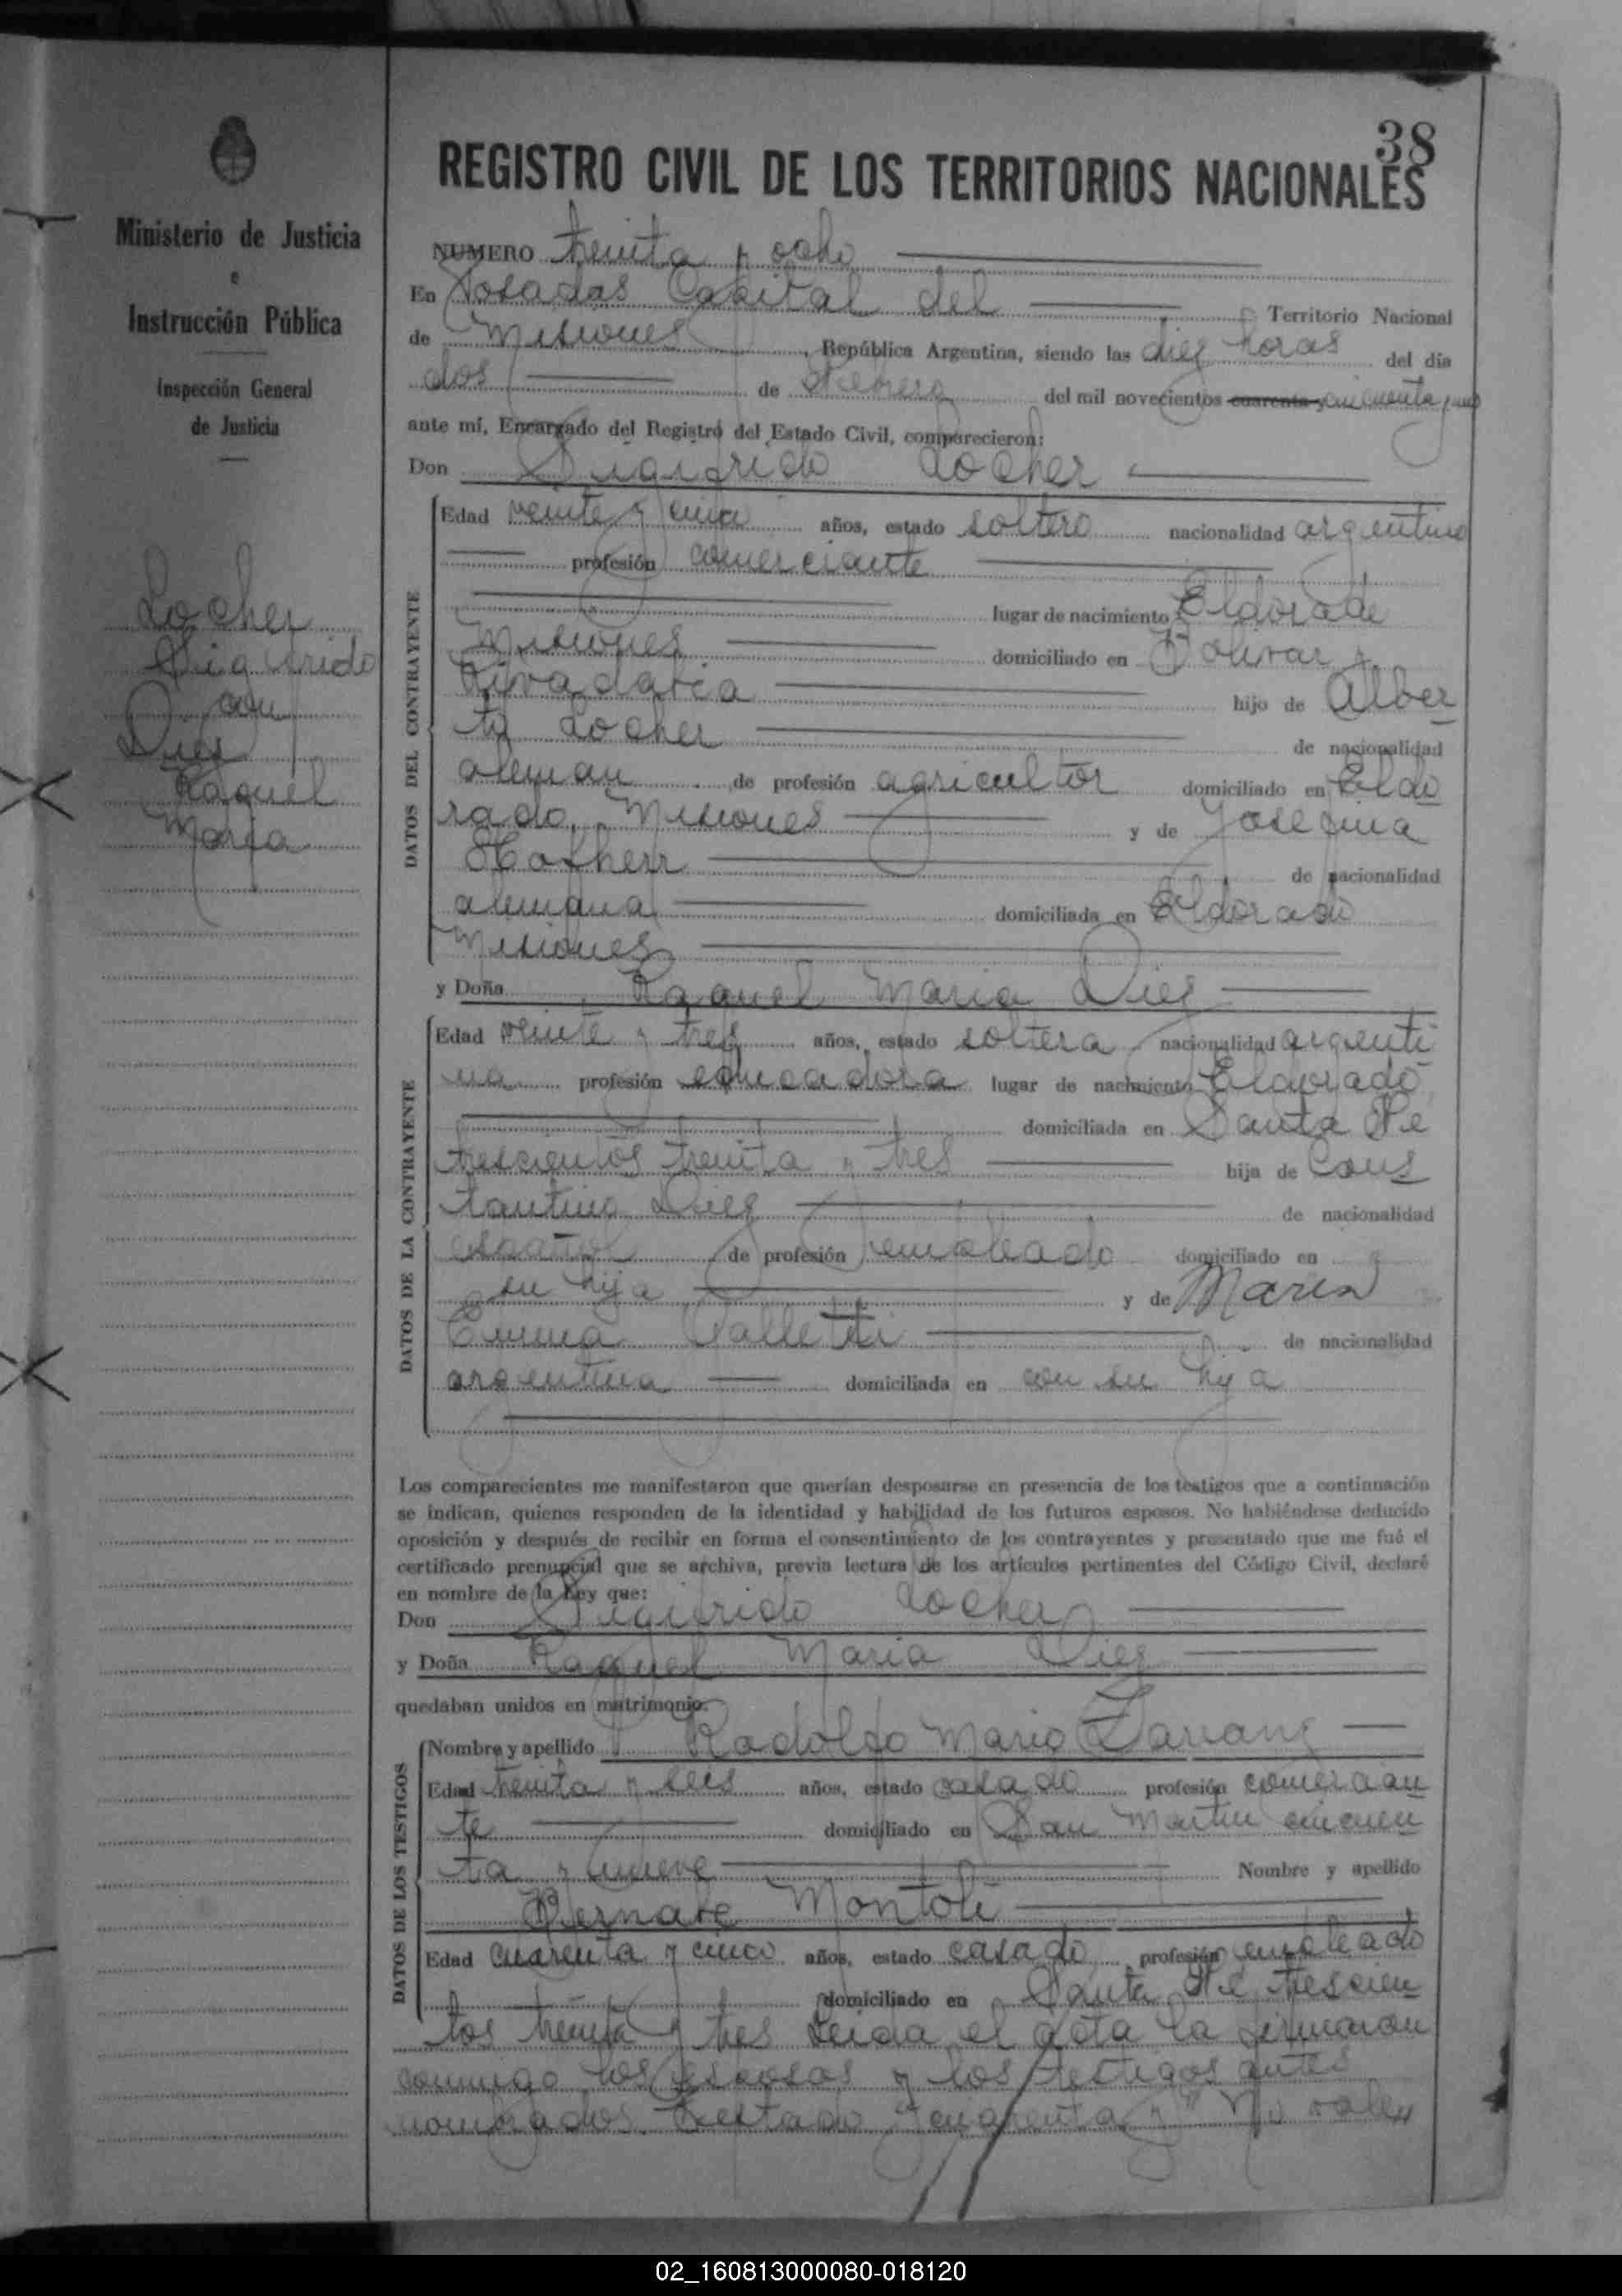 38
REGISTRO CIVIL DE LOS TERRITORIOS NACIONALES
Ministerio de Justicia
e
Instrucción Pública
Inspección General
de Justicia
Locher
Sigifrido
con
Diez
Raquel
Maria
NUMERO treinta y ocho
En Posadas Capital del Territorio Nacional
de Misiones, República Argentina, siendo las diez horas del día
dos de Febrero del mil novecientos cuarenta y cincuenta y uno
ante mí, Encargado del Registro del Estado Civil, comparecieron:
Don Sigifrido Locher
DATOS DEL CONTRAYENTE
Edad veinte y cinco años, estado soltero nacionalidad argentino
profesión comerciante
lugar de nacimiento Eldorado
Misiones domiciliado en Bolivar y
Rivadavia hijo de Alber
to Locher de nacionalidad
aleman de profesión agricultor domiciliado en Eldo
rado, Misiones y de Josefina
de nacionalidad
alemana domiciliada en Eldorado
Misiones
y Doña Raquel Maria Diez
DATOS DE LA CONTRAYENTE
Edad veinte y tres años, estado soltera nacionalidad argenti
na profesión educadora lugar de nacimiento Eldorado
domiciliada en Santa Fe
trescientos treinta y tres hija de Cons
tantino Diez de nacionalidad
español de profesión empleado domiciliado en
su hija y de Maria
Emma de nacionalidad
argentina domiciliada en con su hija
Los comparecientes me manifestaron que querían desposarse en presencia de los testigos que a continuación
se indican, quienes responden de la identidad y habilidad de los futuros esposos. No habiéndose deducido
oposición y después de recibir en forma el consentimiento de los contrayentes y presentado que me fué el
certificado prenupcial que se archiva, previa lectura de los artículos pertinentes del Código Civil, declaré
en nombre de la Ley que:
Don Sigifrido Locher
y Doña Raquel Maria Diez
quedaban unidos en matrimonio.
DATOS DE LOS TESTIGOS
Nombre y apellido Rodolfo Mario
Edad treinta y seis años, estado casado profesión comercian
te domiciliado en San Martin cincuen
ta y nueve Nombre y apellido
Montoli
Edad cuarenta y cinco años, estado casado profesión empleado
domiciliado en Santa Fe trescien
tos treinta y tres Leida el acta la firmaron
conmigo los esposos y los testigos antes
nombrados. Testado "cuarenta y" No vale
02_160813000080-018120